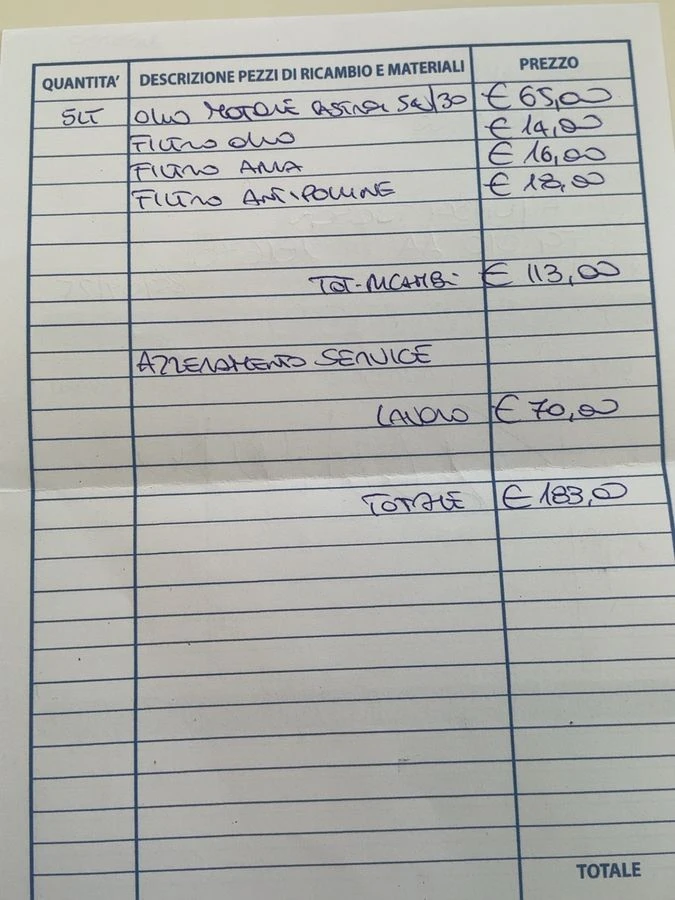 QUANTITA' DESCRIZIONE PEZZI DI RICAMBIO E MATERIALI PREZZO
5LT OLIO MOTORE CASTROL 5W/30 € 65,00
FILTRO OLIO € 14,00
FILTRO ARIA € 16,00
FILTRO ANTIPOLLINE € 18,00
TOT. RICAMBI € 113,00
AZZERAMENTO SERVICE
LAVORO € 70,00
TOTALE € 183,00
TOTALE